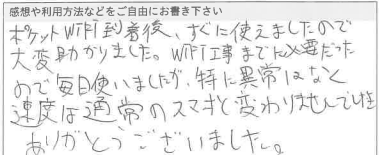 感想や利用方法などをご自由にお書き下さい
ポケットWiFi到着後、すぐに使えましたので
大変助かりました。WiFi工事までに必要だった
ので毎日使いましたが、特に異常はなく
速度は通常のスマホと変わりませんでした
ありがとうございました。